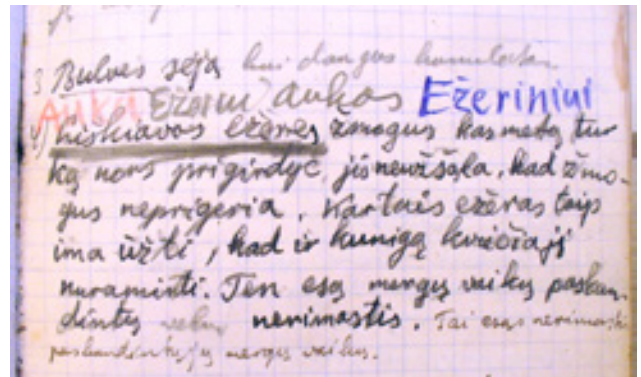 3 Bulves sėja kui dangus
Aukų Ežerui aukos Ežeriniui
4) ežeres žmogus kasmetą tur
ką nors prigirdyc, jis neužšąla, kad žmo-
gus neprigeria. Kartais ežeras taip
ima ūžti, kad ir kunigą kviečia jį
nuraminti. Ten esą mergų vaikų paskan-
dintų nerimastis. Tai esąs nerimasti
paskandintųjų mergų vaikų.